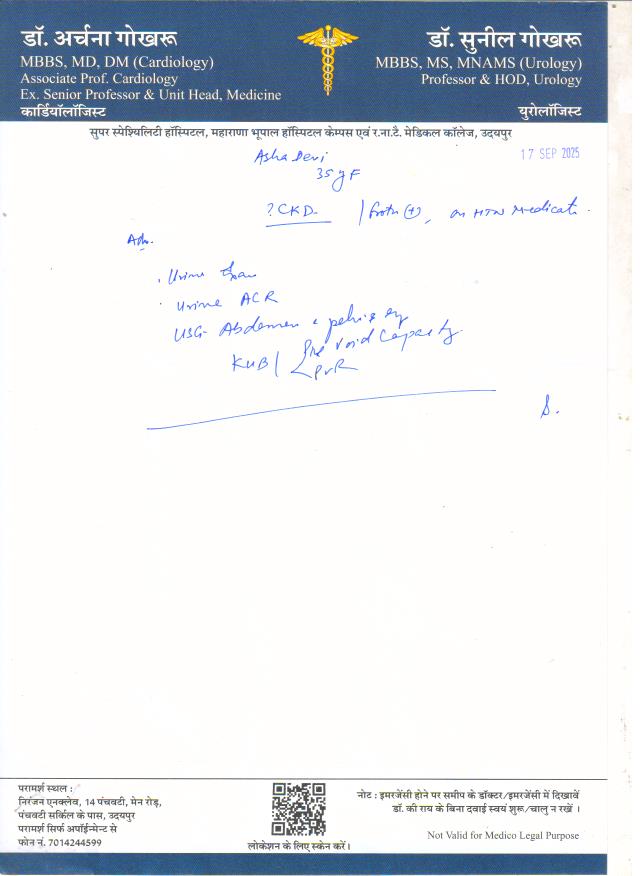 डॉ. अर्चना गोखरू
MBBS, MD, DM (Cardiology)
Associate Prof. Cardiology
Ex. Senior Professor & Unit Head, Medicine
कार्डियॉलॉजिस्ट
डॉ. सुनील गोखरू
MBBS, MS, MNAMS (Urology)
Professor & HOD, Urology
युरोलॉजिस्ट
सुपर स्पेश्यिलिटी हॉस्पिटल, महाराणा भूपाल हॉस्पिटल केम्पस एवं र.ना.टै. मेडिकल कॉलेज, उदयपुर
17 SEP 2025
Asha Devi
35 y F
? CKD. / Protn (+), on HTN Medicati.
Adv.
. Urine
. Urine ACR
USG- Abdomen pelvis
KUB / Pre Void Capacity
PVR
S.
परामर्श स्थल :
निरंजन एनक्लेव, 14 पंचवटी, मेन रोड़,
पंचवटी सर्किल के पास, उदयपुर
परामर्श सिर्फ अपॉईन्मेन्ट से
फोन नं. 7014244599
लोकेशन के लिए स्केन करें।
नोट : इमरजेंसी होने पर समीप के डॉक्टर/इमरजेंसी में दिखावें
डॉ. की राय के बिना दवाई स्वयं शुरू/चालु न रखें ।
Not Valid for Medico Legal Purpose